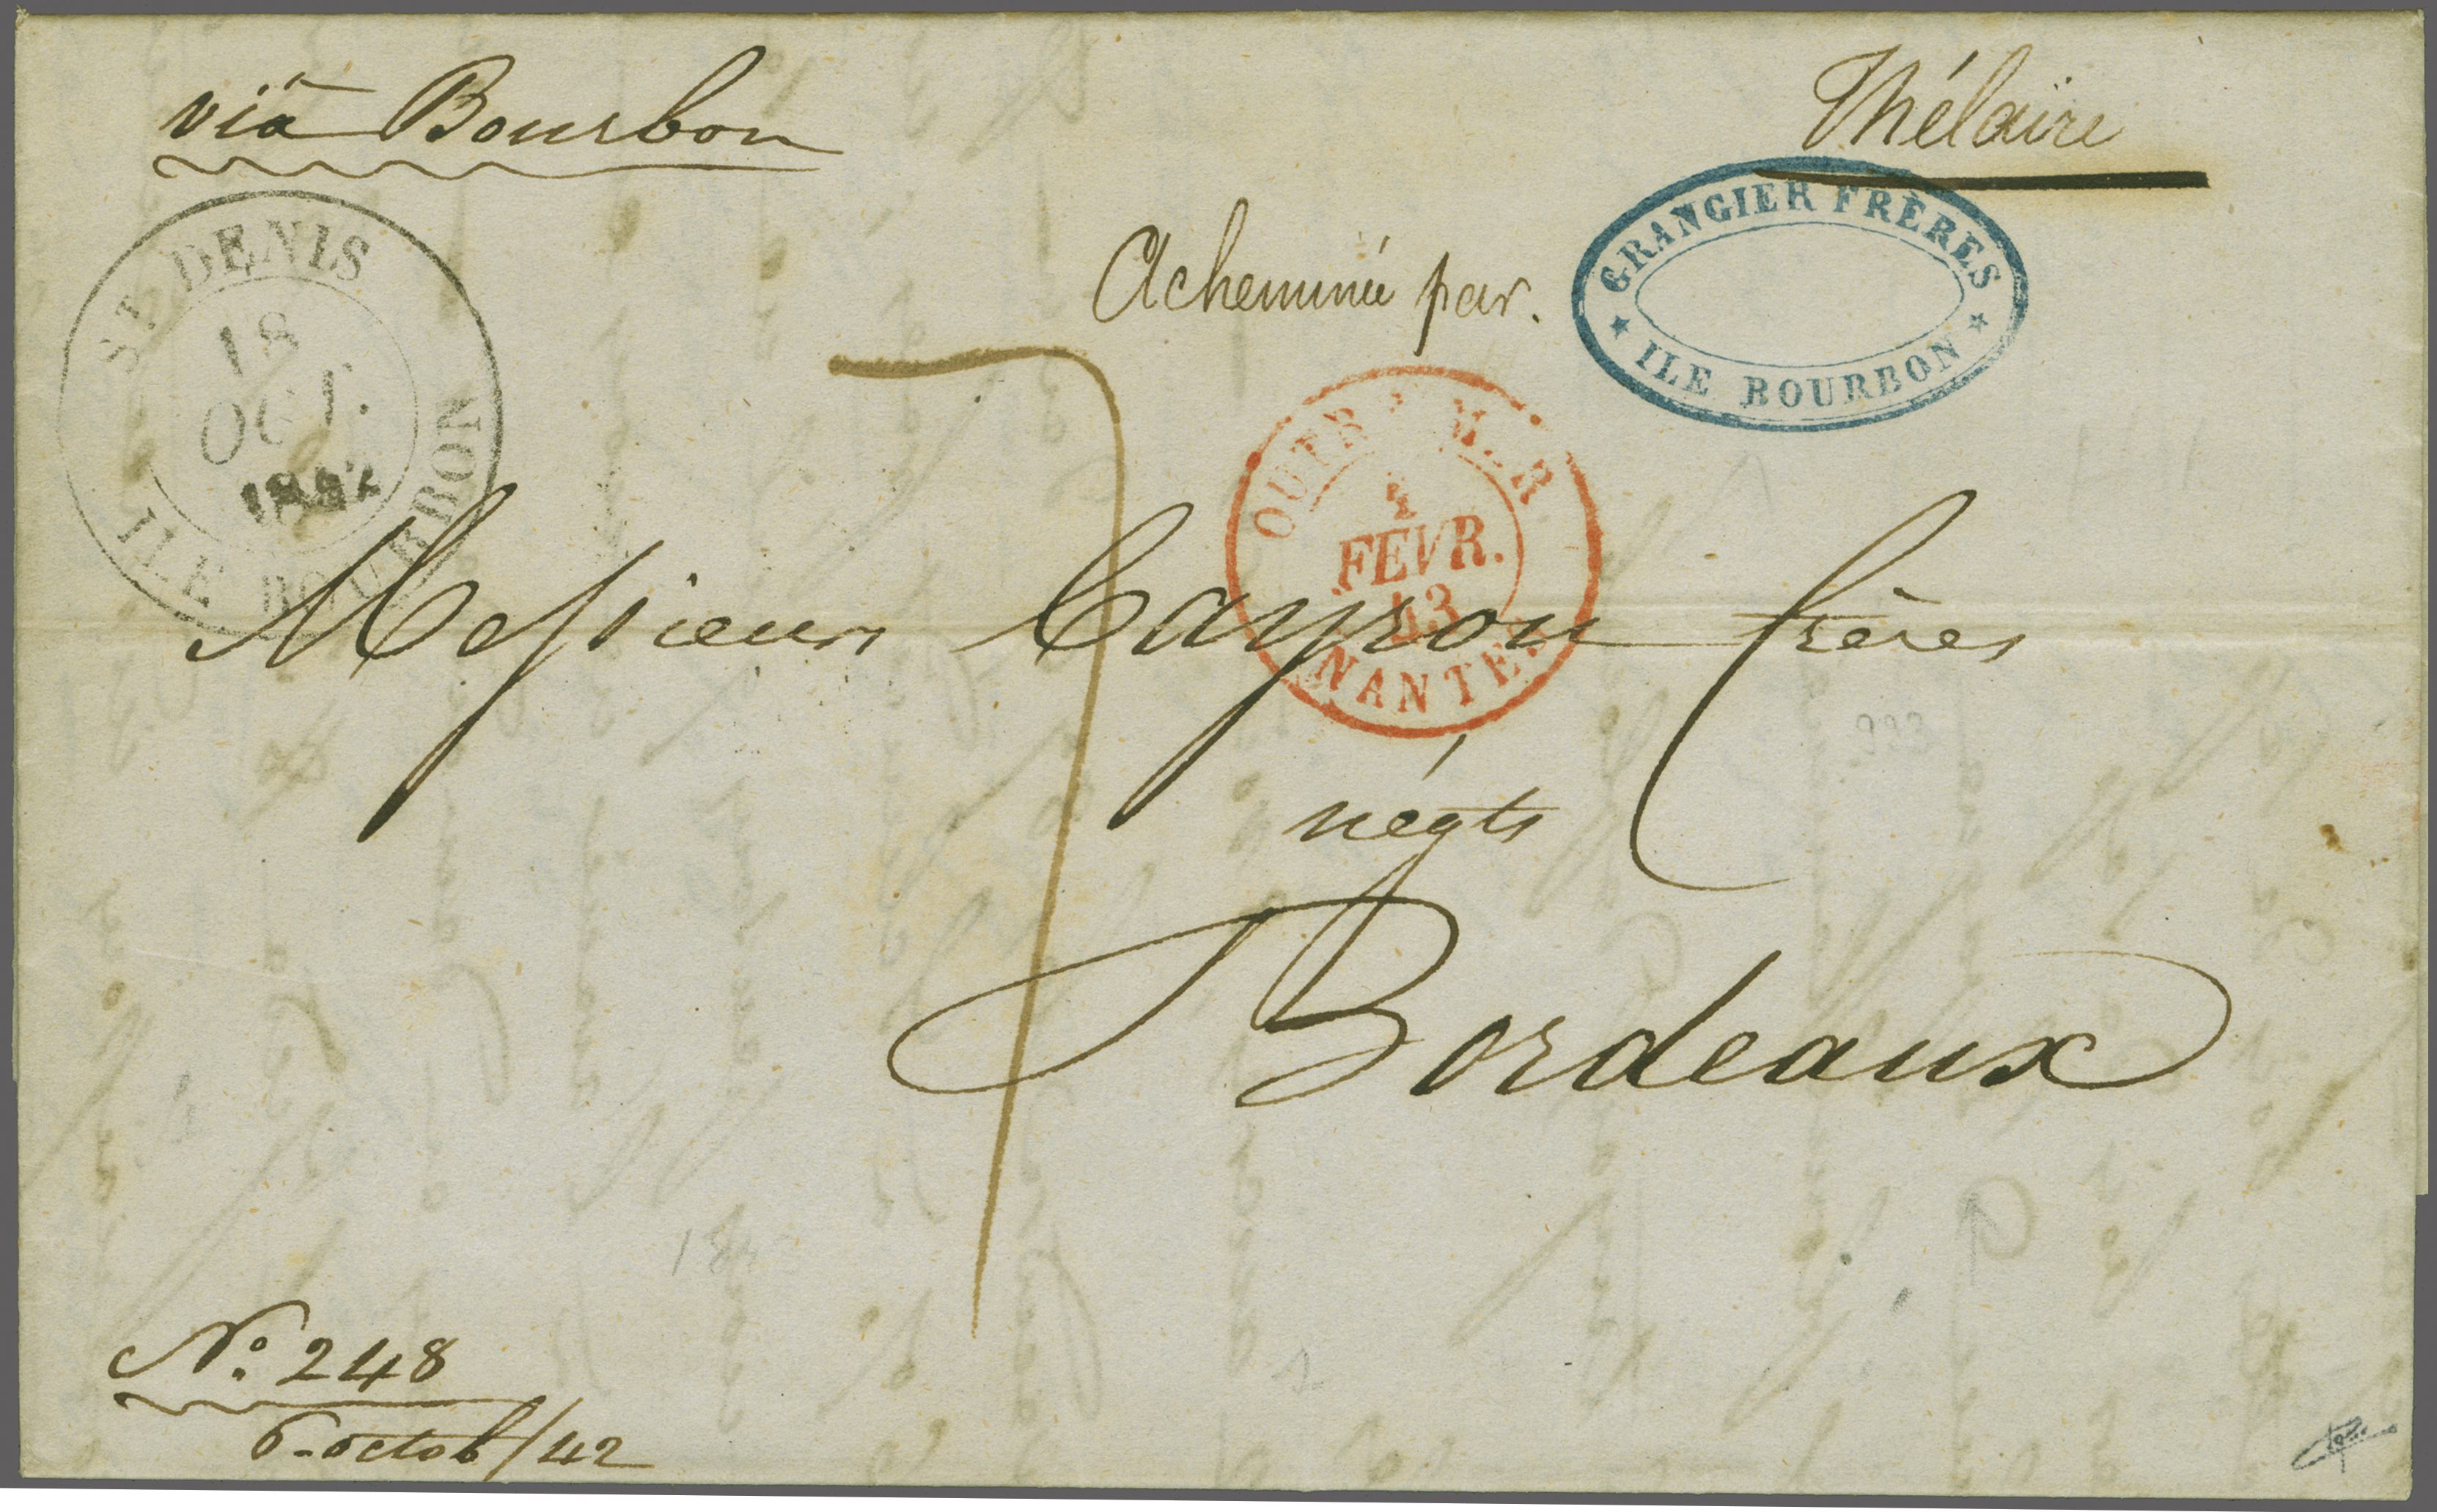 viâ Bourbon
Thélaïre
Acheminée par.
GRANGIER FRÈRES
★ ILE BOURBON ★
ST DENIS
18
OCT.
1842
ILE BOURBON
OUTRE MER
FEVR.
43
NANTES
7
Messieurs Cayrou frères
négts
Bordeaux
993
No. 248
6. octob/42